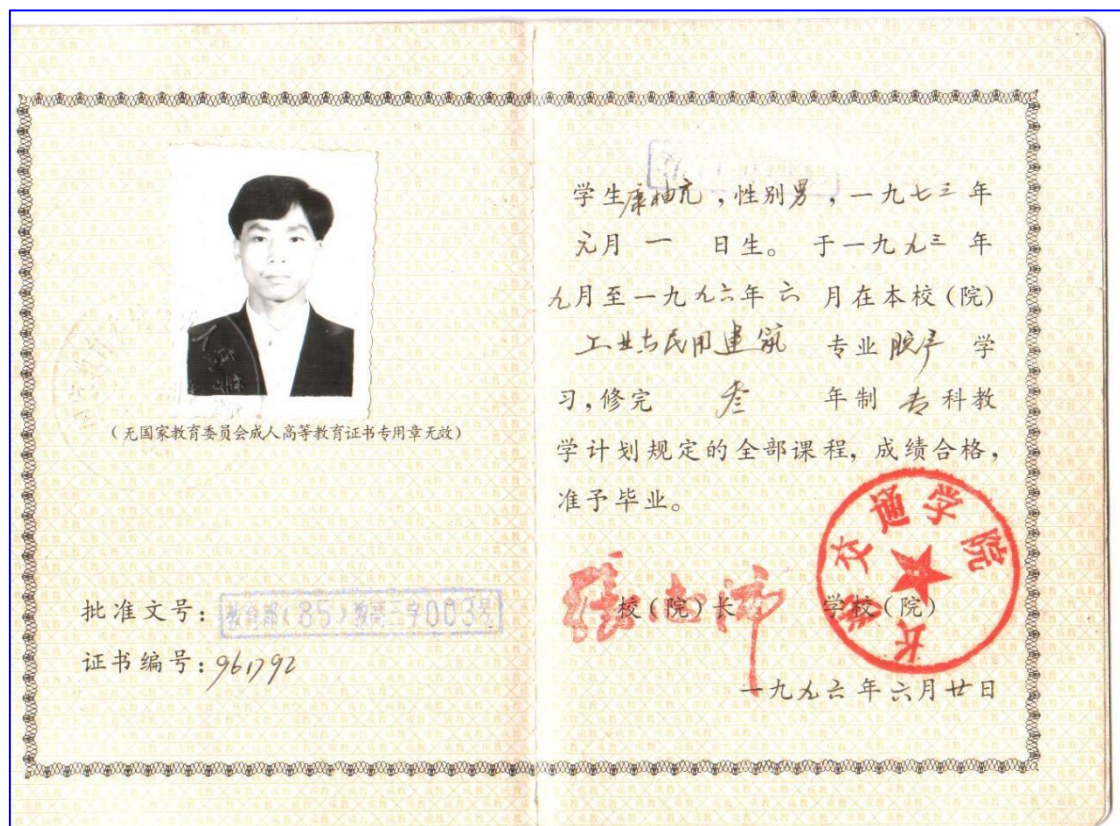 (无国家教育委员会成人高等教育证书专用章无效)
批准文号：教育部(85)教高三字003号
证书编号：961792
学生康柚亢，性别男，一九七三年
元月一日生。于一九九三年
九月至一九九六年六月在本校(院)
工业与民用建筑专业脱产学
习，修完叁年制专科教
学计划规定的全部课程，成绩合格，
准予毕业。
校(院)长 学校(院)
长沙交通学院
一九九六年六月廿日